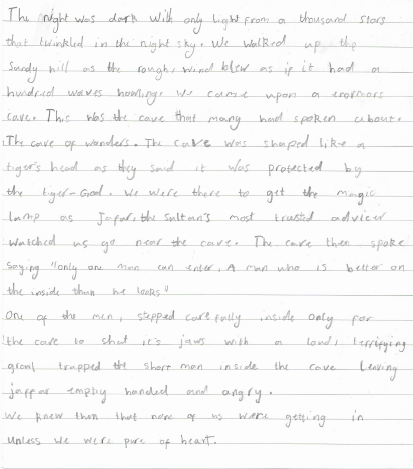 The night was dark with only light from a thousand stars
that twinkled in the night sky. We walked up the
sandy hill as the rough, wind blew as if it had a
hundred waves howling. We came upon a enormous
cave. This was the cave that many had spoken about.
The cave of wonders. The cave was shaped like a
tiger's head as they said it was protected by
the tiger-God. We were there to get the magic
lamp as Jafar, the sultan's most trusted advicer
watched us go near the cave. The cave then spoke
saying "only one man can enter. A man who is better on
the inside than he looks"
One of the men, stepped carefully inside only for
the cave to shut it's jaws with a loud, terrifying
growl trapped the short man inside the cave leaving
jaffar empty handed and angry.
We knew then that none of us were getting in
unless we were pure of heart.